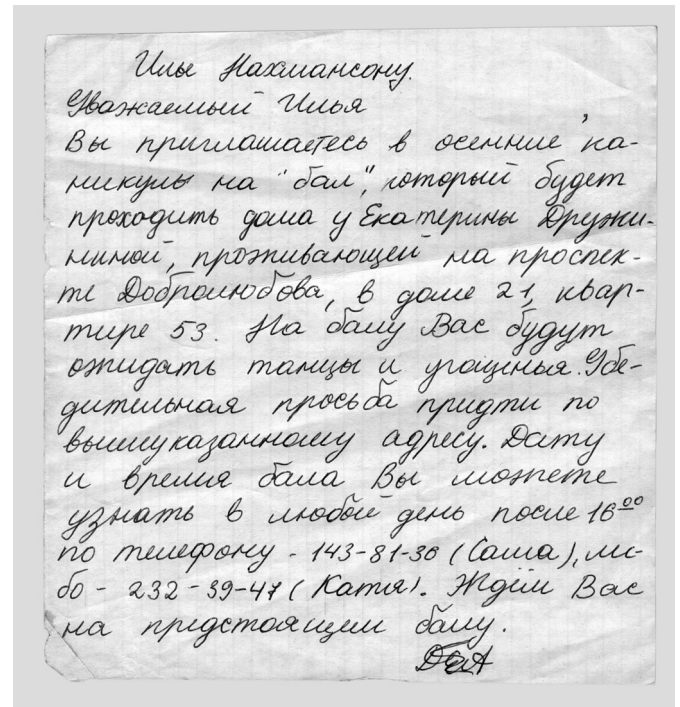 Илье Нахмансону.
Уважаемый Илья
Вы приглашаетесь в осенние ка-
никулы на "бал", который будет
проходить дома у Екатерины Дружи-
ниной, проживающей на проспек-
те Добролюбова, в доме 21, квар-
тире 53. На балу Вас будут
ожидать танцы и угощенья. Убе-
дительная просьба придти по
вышеуказанному адресу. Дату
и время бала Вы можете
узнать в любой день после 16 00
по телефону - 143-81-36 (Саша), ли-
бо - 232-39-47 (Катя). Ждём Вас
на предстоящем балу.